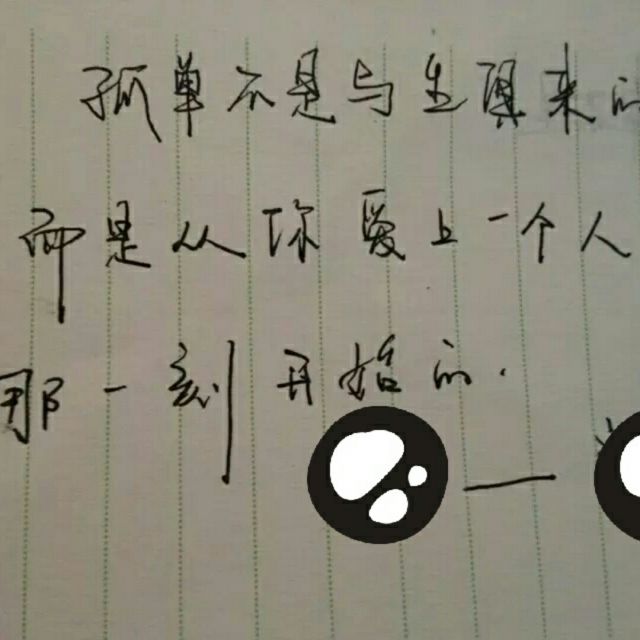 孤单不是与生俱来的
而是从你爱上一个人
那一刻开始的.
—